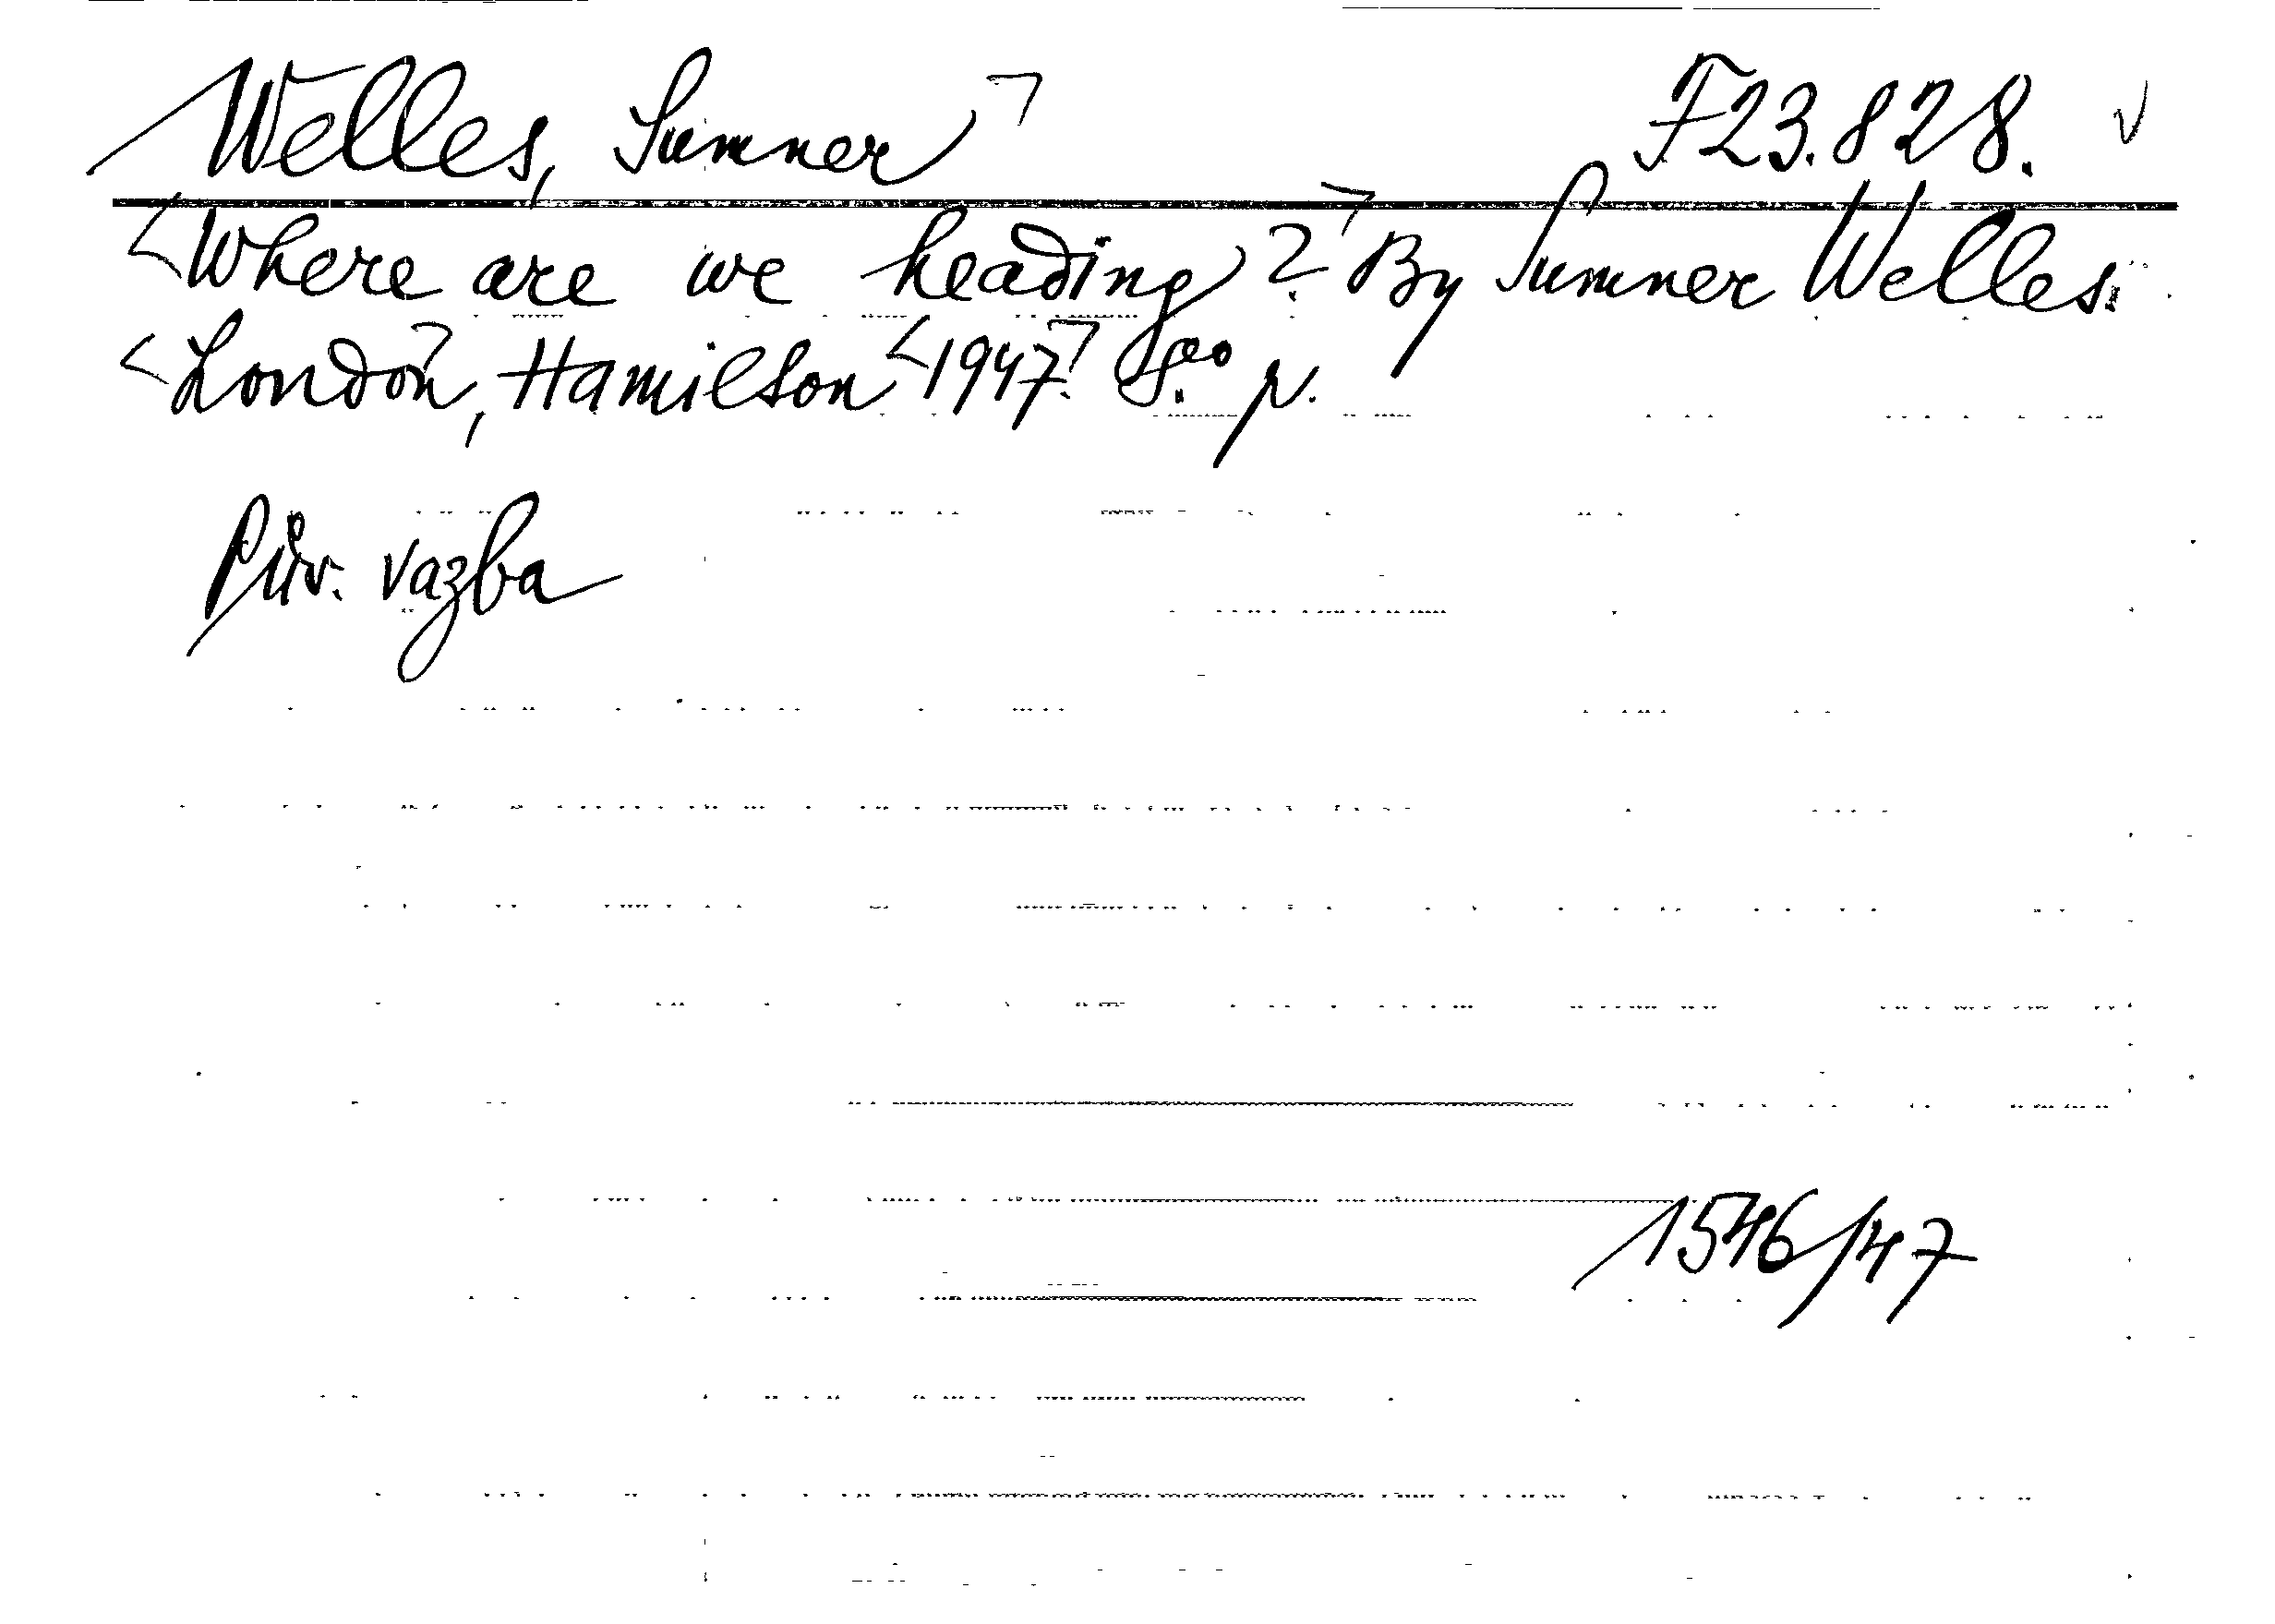 Welles, Sumner F 23.828. √
Where are we heading? By Sumner Welles.
London, Hamilton 1947. 8.° p.
Pův. vazba
1546/47